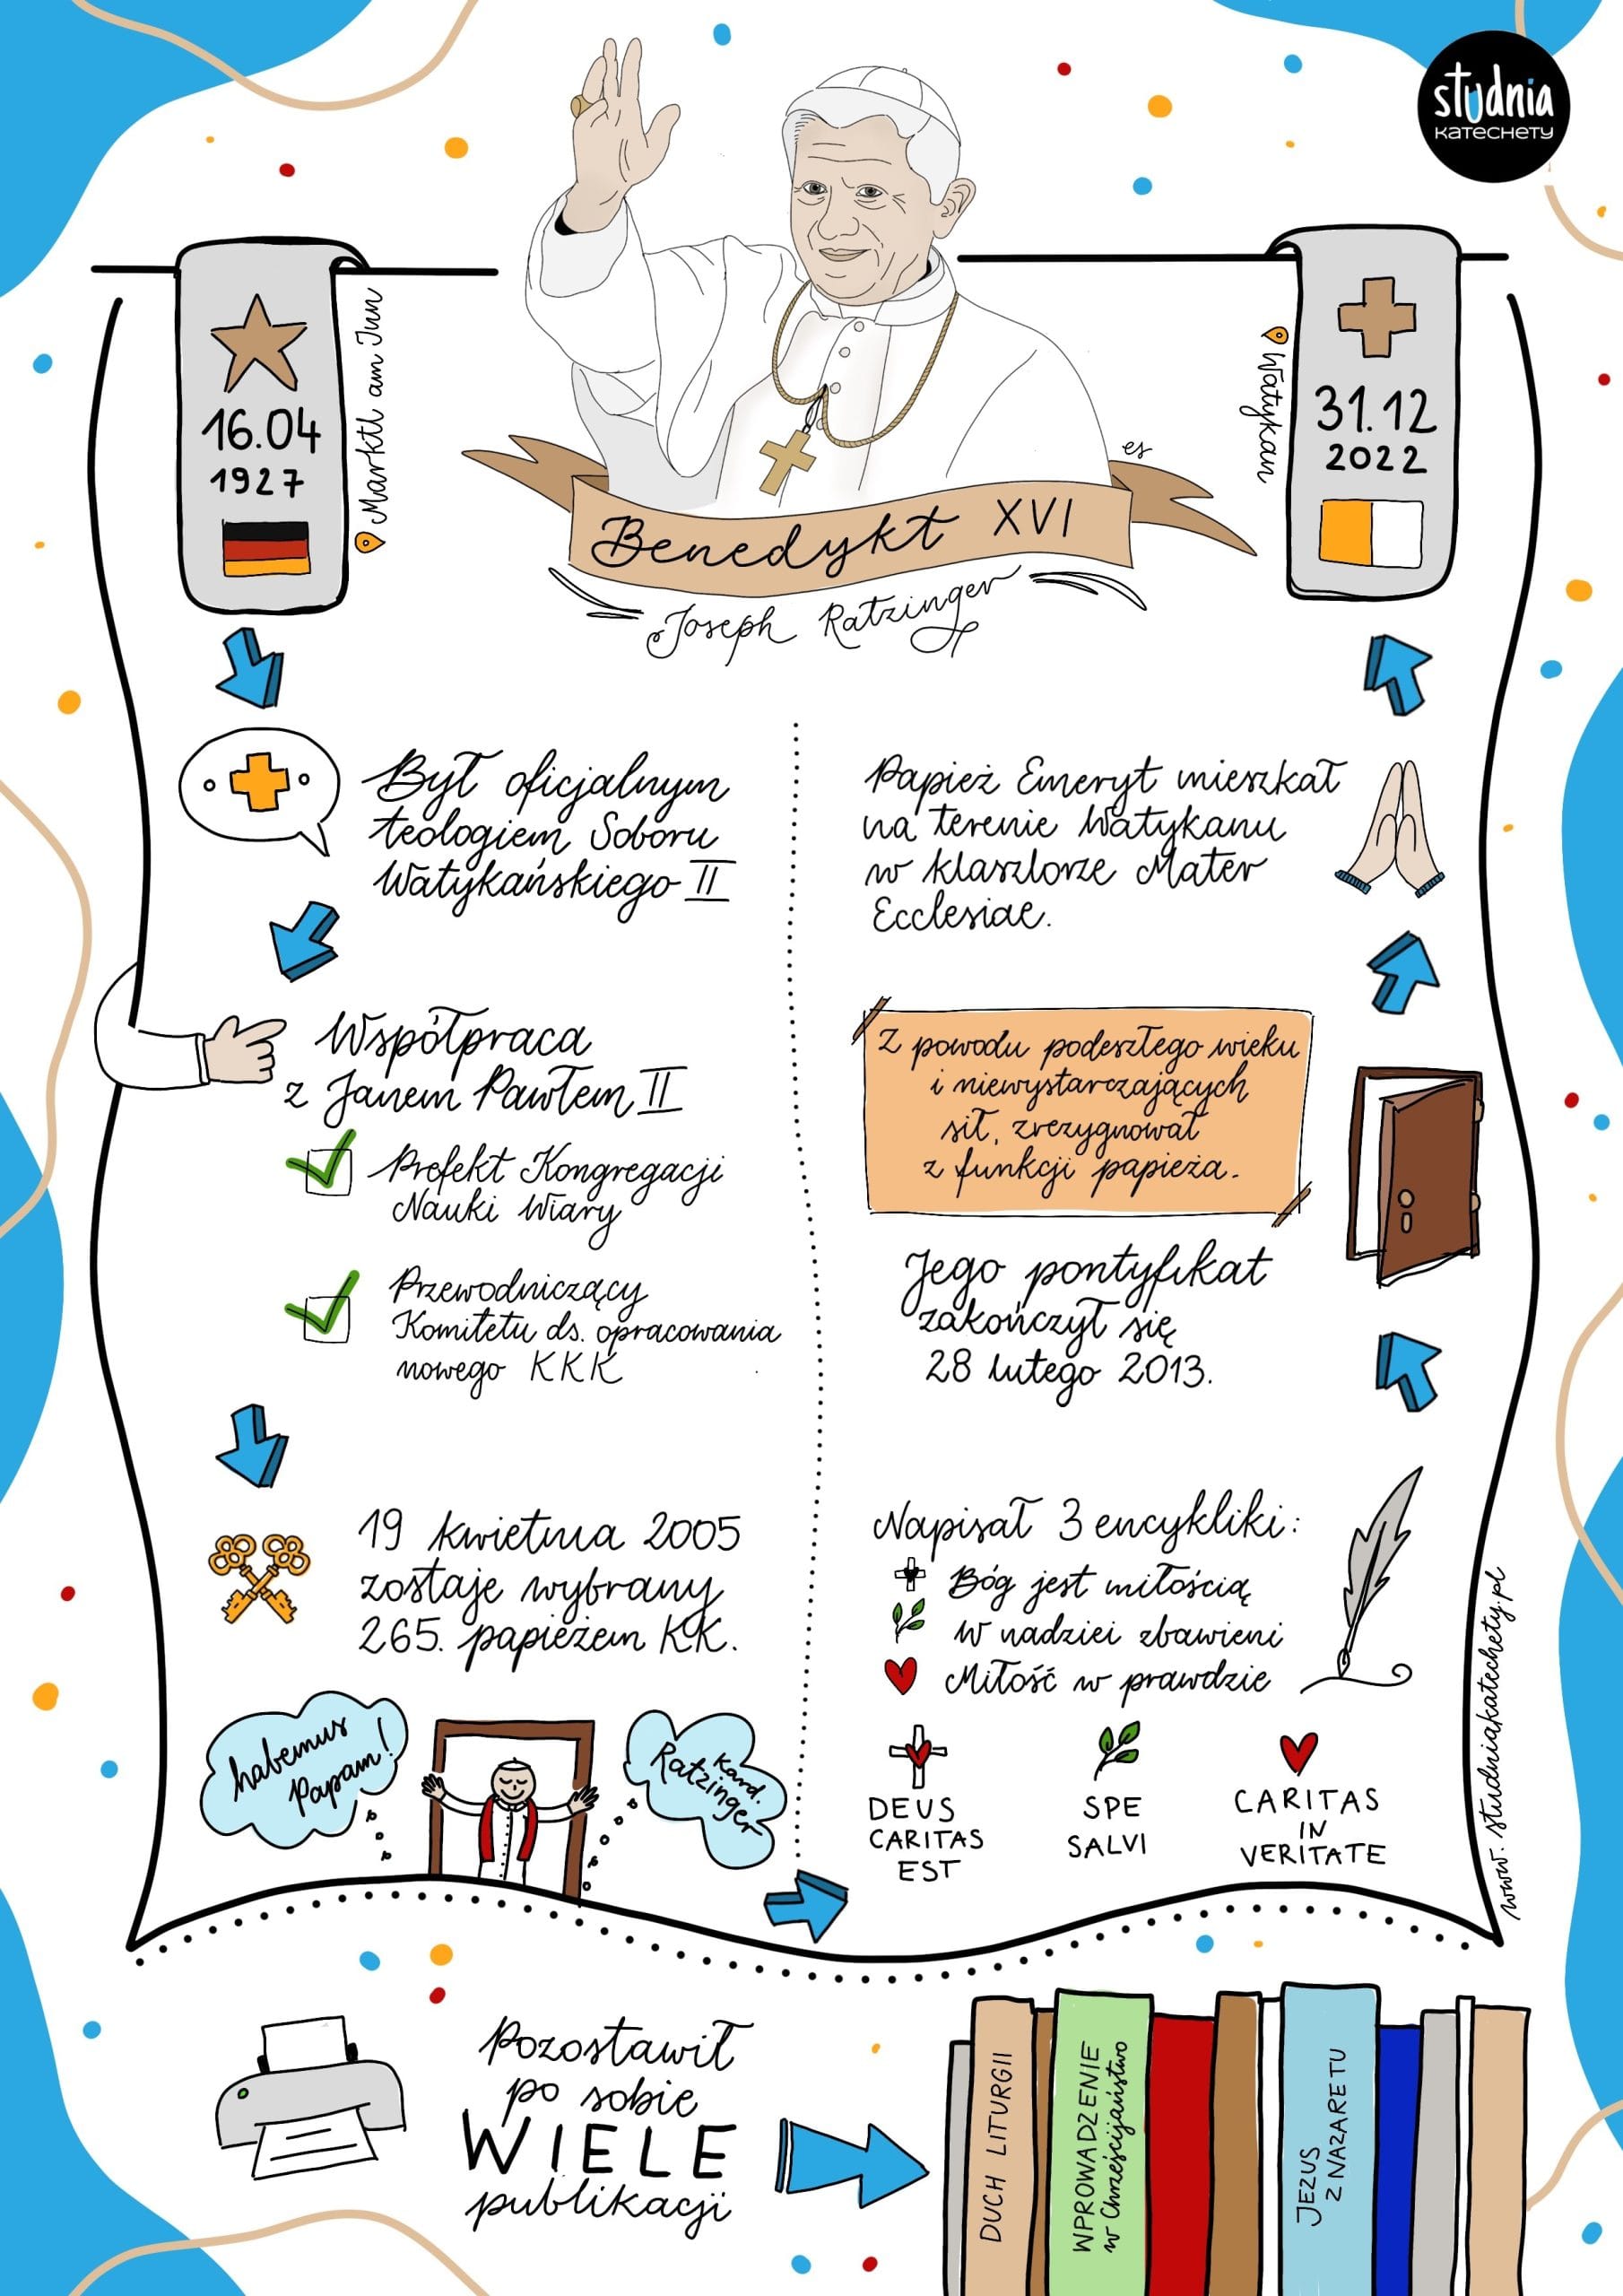 studnia
KATECHETY
16.04
1927
Marktl am Inn
31.12
2022
Watykan
es
Benedykt XVI
Joseph Ratzinger
Był oficjalnym
teologiem Soboru
Watykańskiego II
Współpraca
z Janem Pawłem II
Prefekt Kongregacji
Nauki Wiary
Przewodniczący
Komitetu ds. opracowania
nowego KKK
19 kwietnia 2005
zostaje wybrany
265. papieżem KK.
habemus
Papam!
Kard.
Ratzinger
Papież Emeryt mieszkał
na terenie Watykanu
w klasztorze Mater
Ecclesiae.
Z powodu podeszłego wieku
i niewystarczających
sił, zrezygnował
z funkcji papieża.
Jego pontyfikat
zakończył się
28 lutego 2013.
Napisał 3 encykliki:
Bóg jest miłością
W nadziei zbawieni
Miłość w prawdzie
DEUS
CARITAS
EST
SPE
SALVI
CARITAS
IN
VERITATE
www.studniakatechety.pl
Pozostawił
po sobie
WIELE
publikacji
DUCH LITURGII
WPROWADZENIE
w Chrześcijaństwo
JEZUS
Z NAZARETU